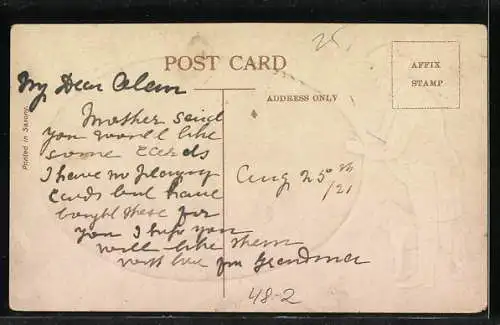 25.
POST CARD
AFFIX
STAMP
ADDRESS ONLY
Printed in Saxony.
My Dear Alan
Mother said
you would like
some cards
I have no playing
cards but have
bought these for
you I hope you
will like them
with love frm Grandma
Aug 25th
/21
48-2